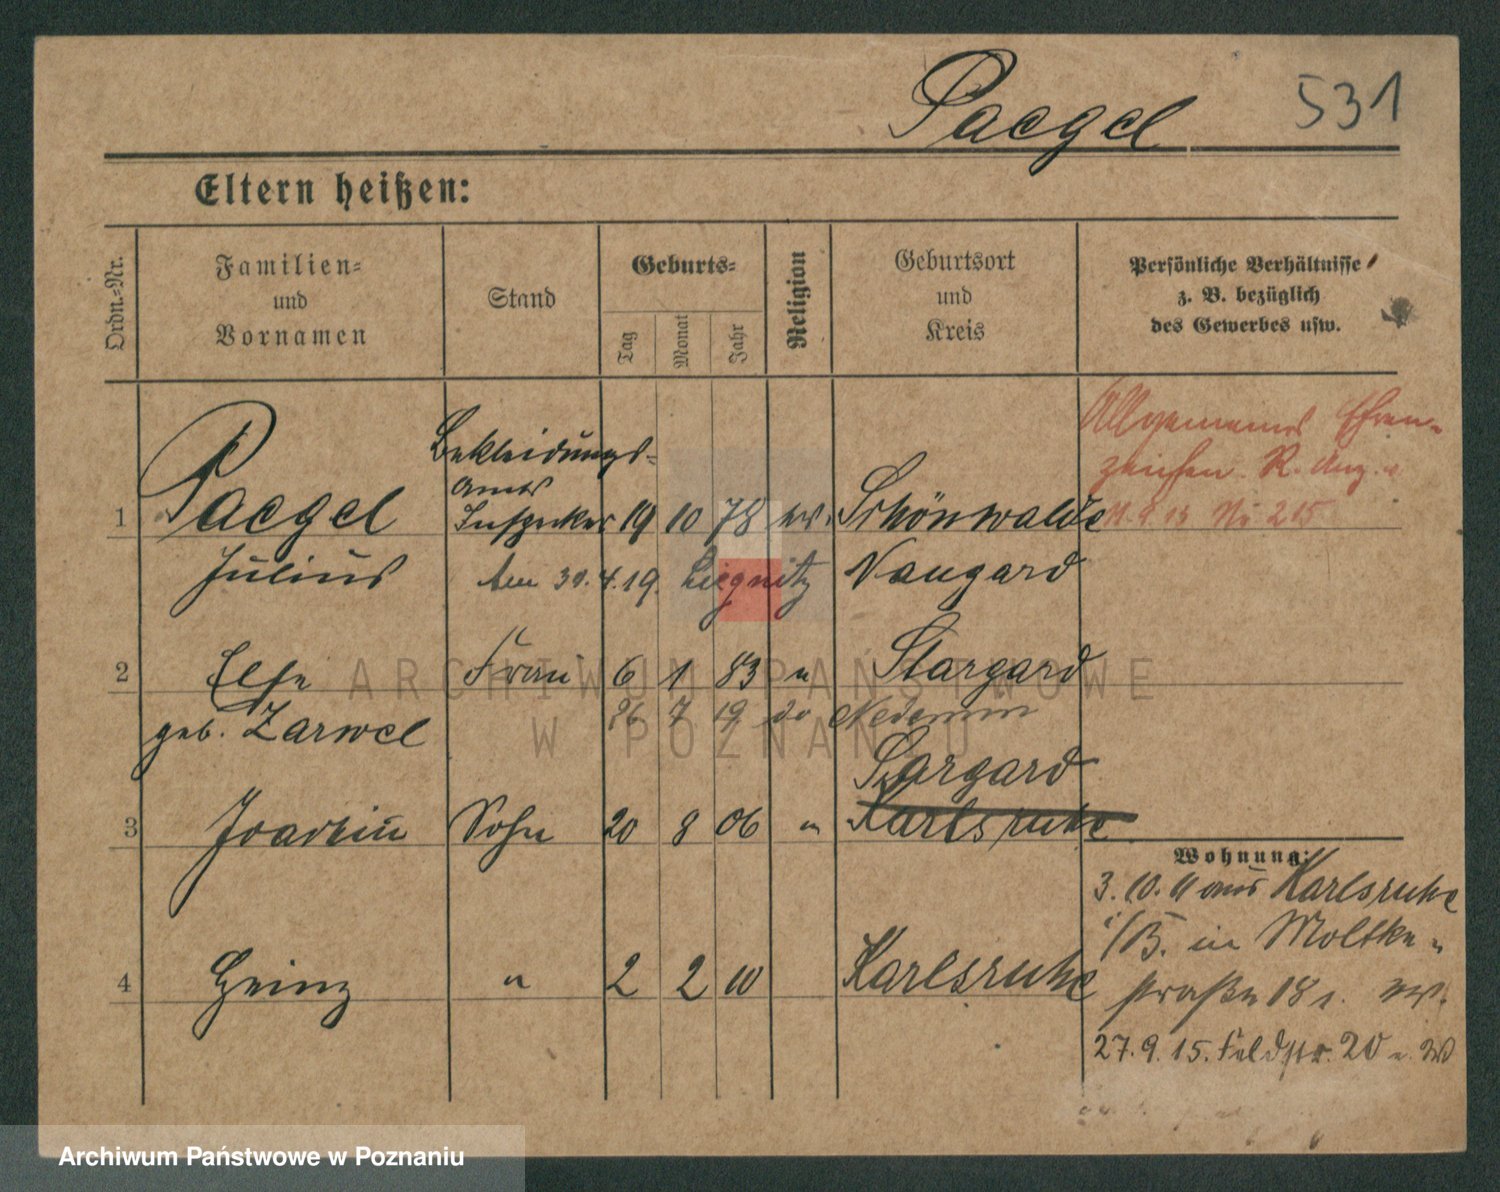 Paegel 531
Eltern heißen:
Ordn.-Nr.
Familien-
und
Vornamen
Stand
Geburts-
Tag
Monat
Jahr
Religion
Geburtsort
und
Kreis
Persönliche Verhältnisse
z. B. bezüglich
des Gewerbes usw.
Allgemeines Ehren-
zeichen R. Anz.
Nr 215
Bekleidungs-
amts
1 Paegel Inspektor 19 10 78 ev. Schönwalde
Julius 30.4.19. Liegnitz Naugard
2 Else Frau 6 1 83 " Stargard
geb. Zarwel
26 7 19
Stargard
3 Joachim Sohn 20 8 06 " Karlsruhe
Wohnung:
3.10.11 aus Karlsruhe
i/B. in Moltke-
straße 18 I.
4 Heinz " 2 2 10 Karlsruhe
27.9.15. Feldstr. 20
ARCHIWUM PAŃSTWOWE
W POZNANIU
Archiwum Państwowe w Poznaniu